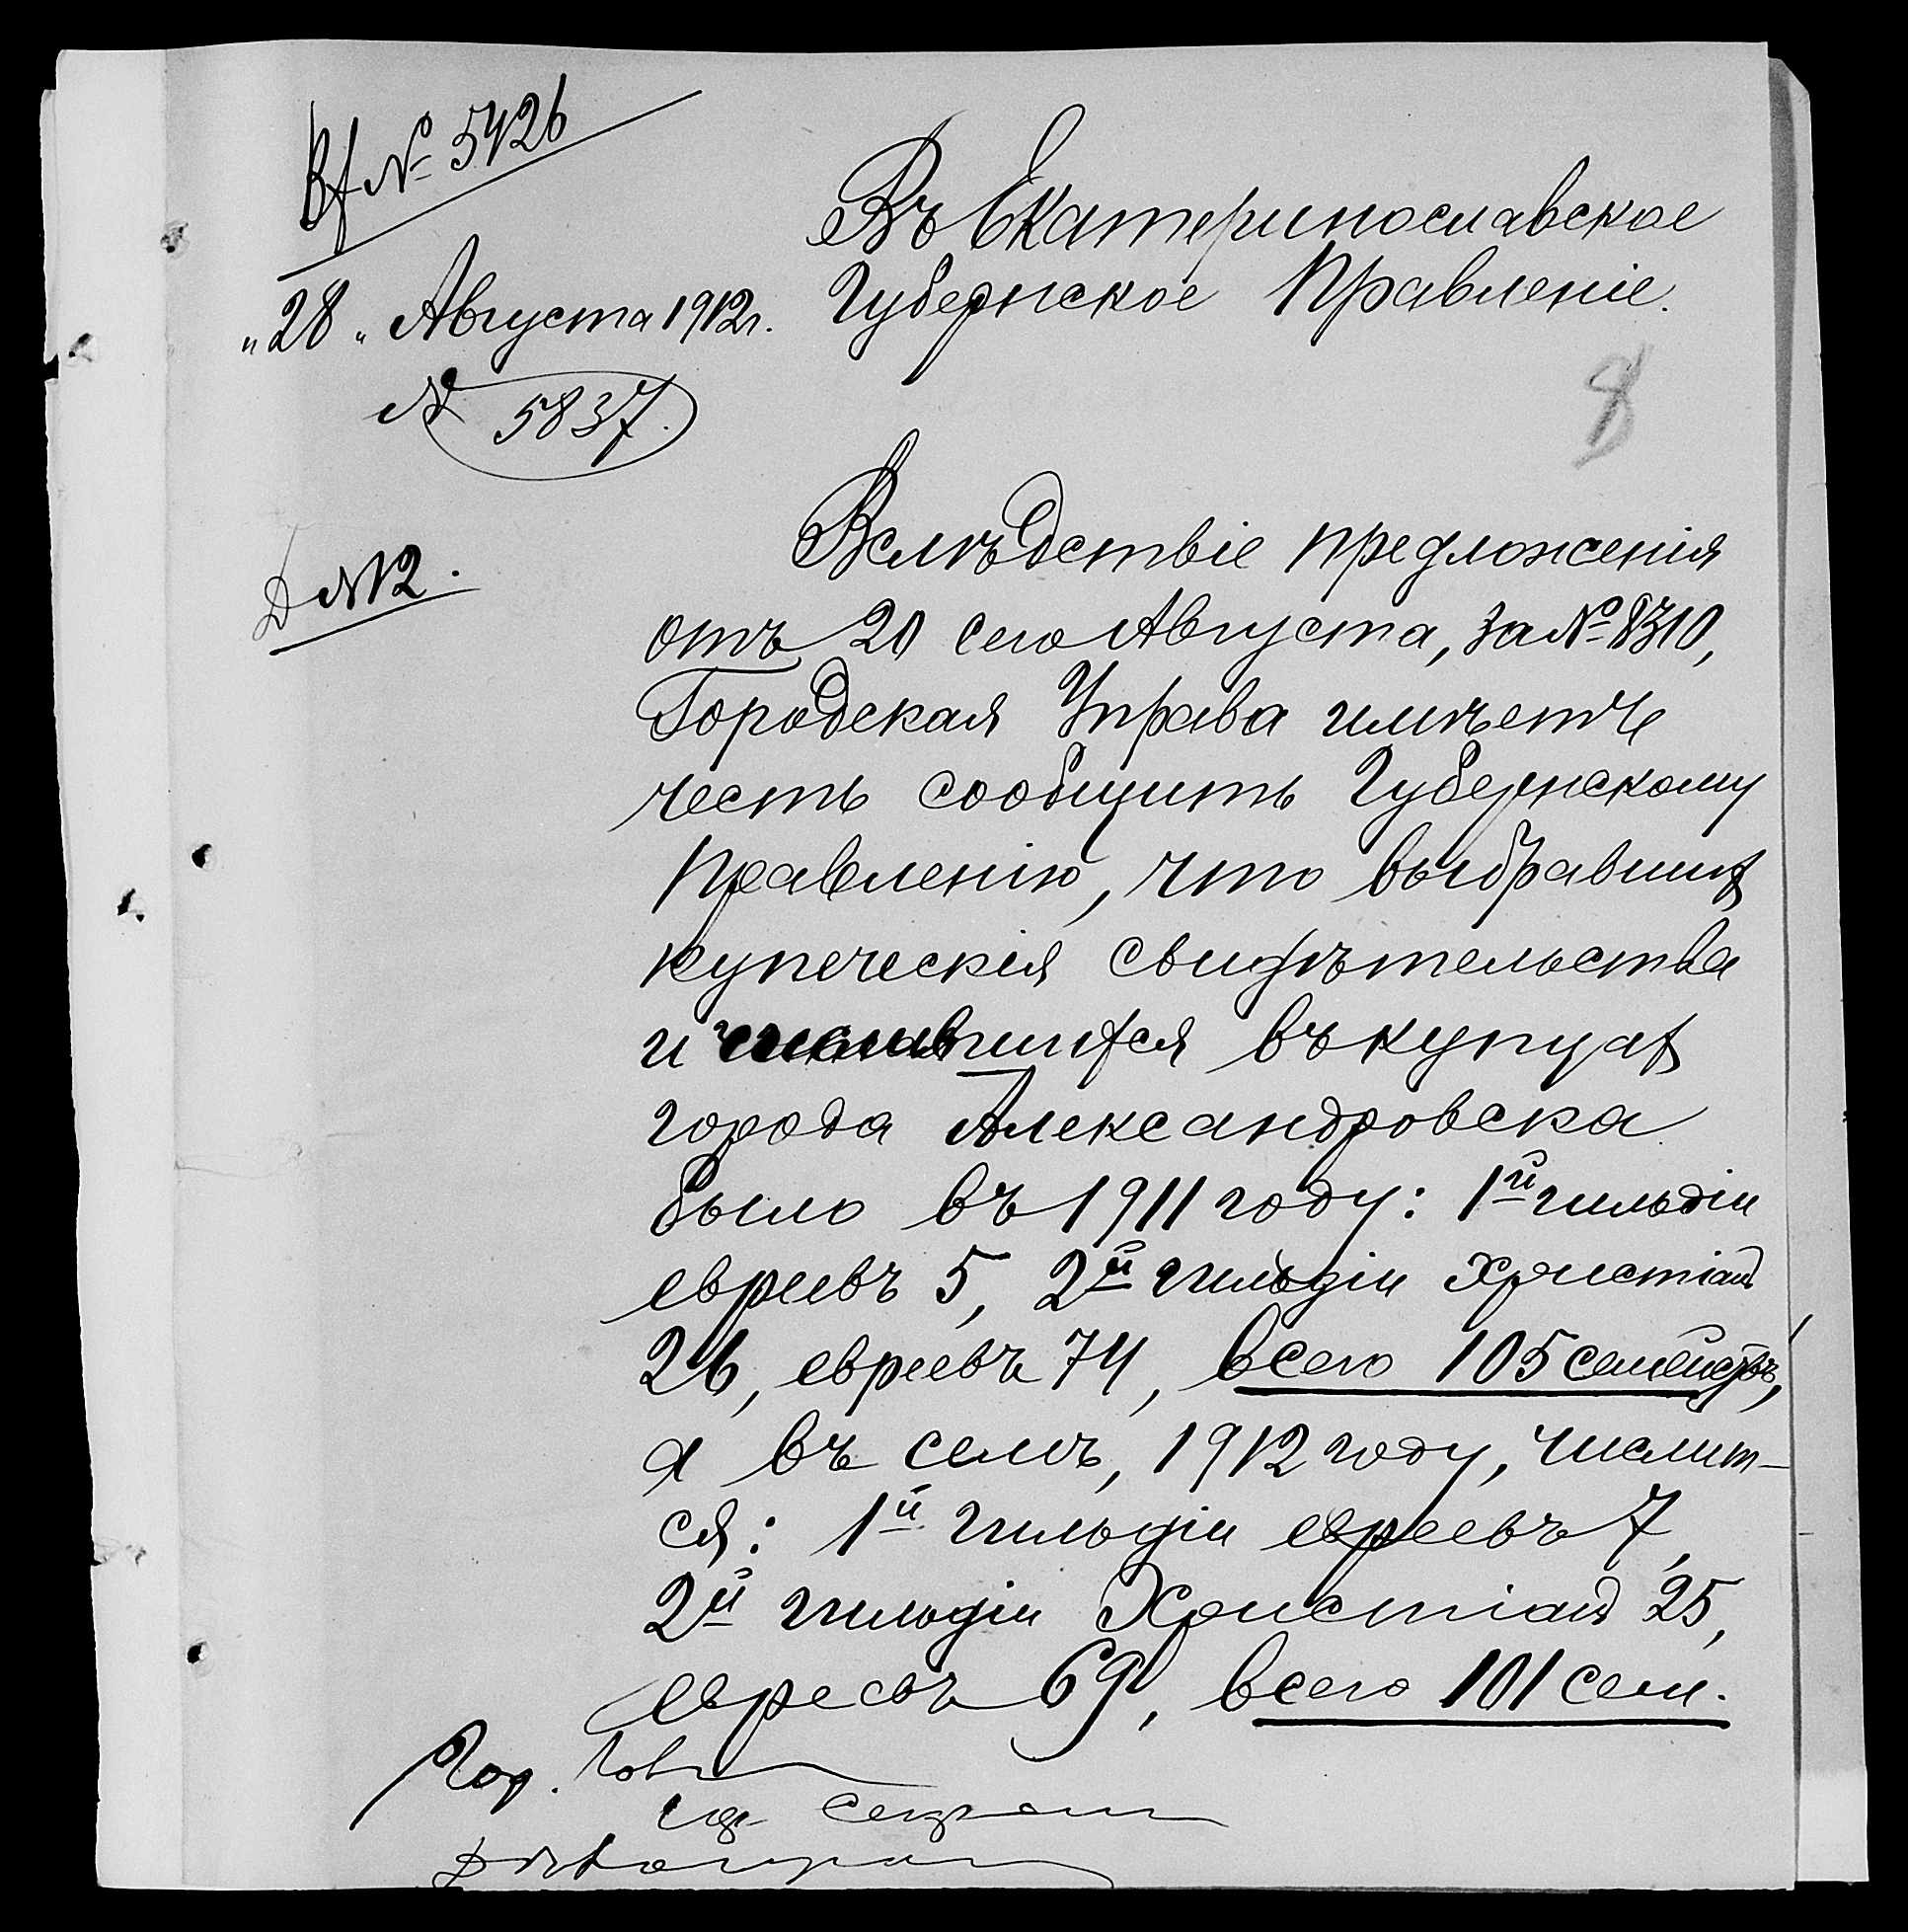 Вх № 5426
Въ Екатеринославское
Губернское Правленіе.
„28„ Августа 1912 г.
№ 5837.
8
Д №12.
Вслѣдствіе предложенія
отъ 20 сего Августа, за № 8310,
Городская Управа имѣетъ
честь сообщить Губернскому
Правленію, что выбравших
купеческія свидѣтельства
и числившихся въ купцах
города Александровска
было въ 1911 году: 1й гильдіи
евреевъ 5, 2й гильдіи Христіанъ
26, евреевъ 74, всего 105 семействъ,
а въ семъ, 1912 году, числит-
ся: 1й гильдіи евреевъ 7,
2й гильдіи Христіанъ 25,
евреевъ 69, всего 101 сем.
Гор.